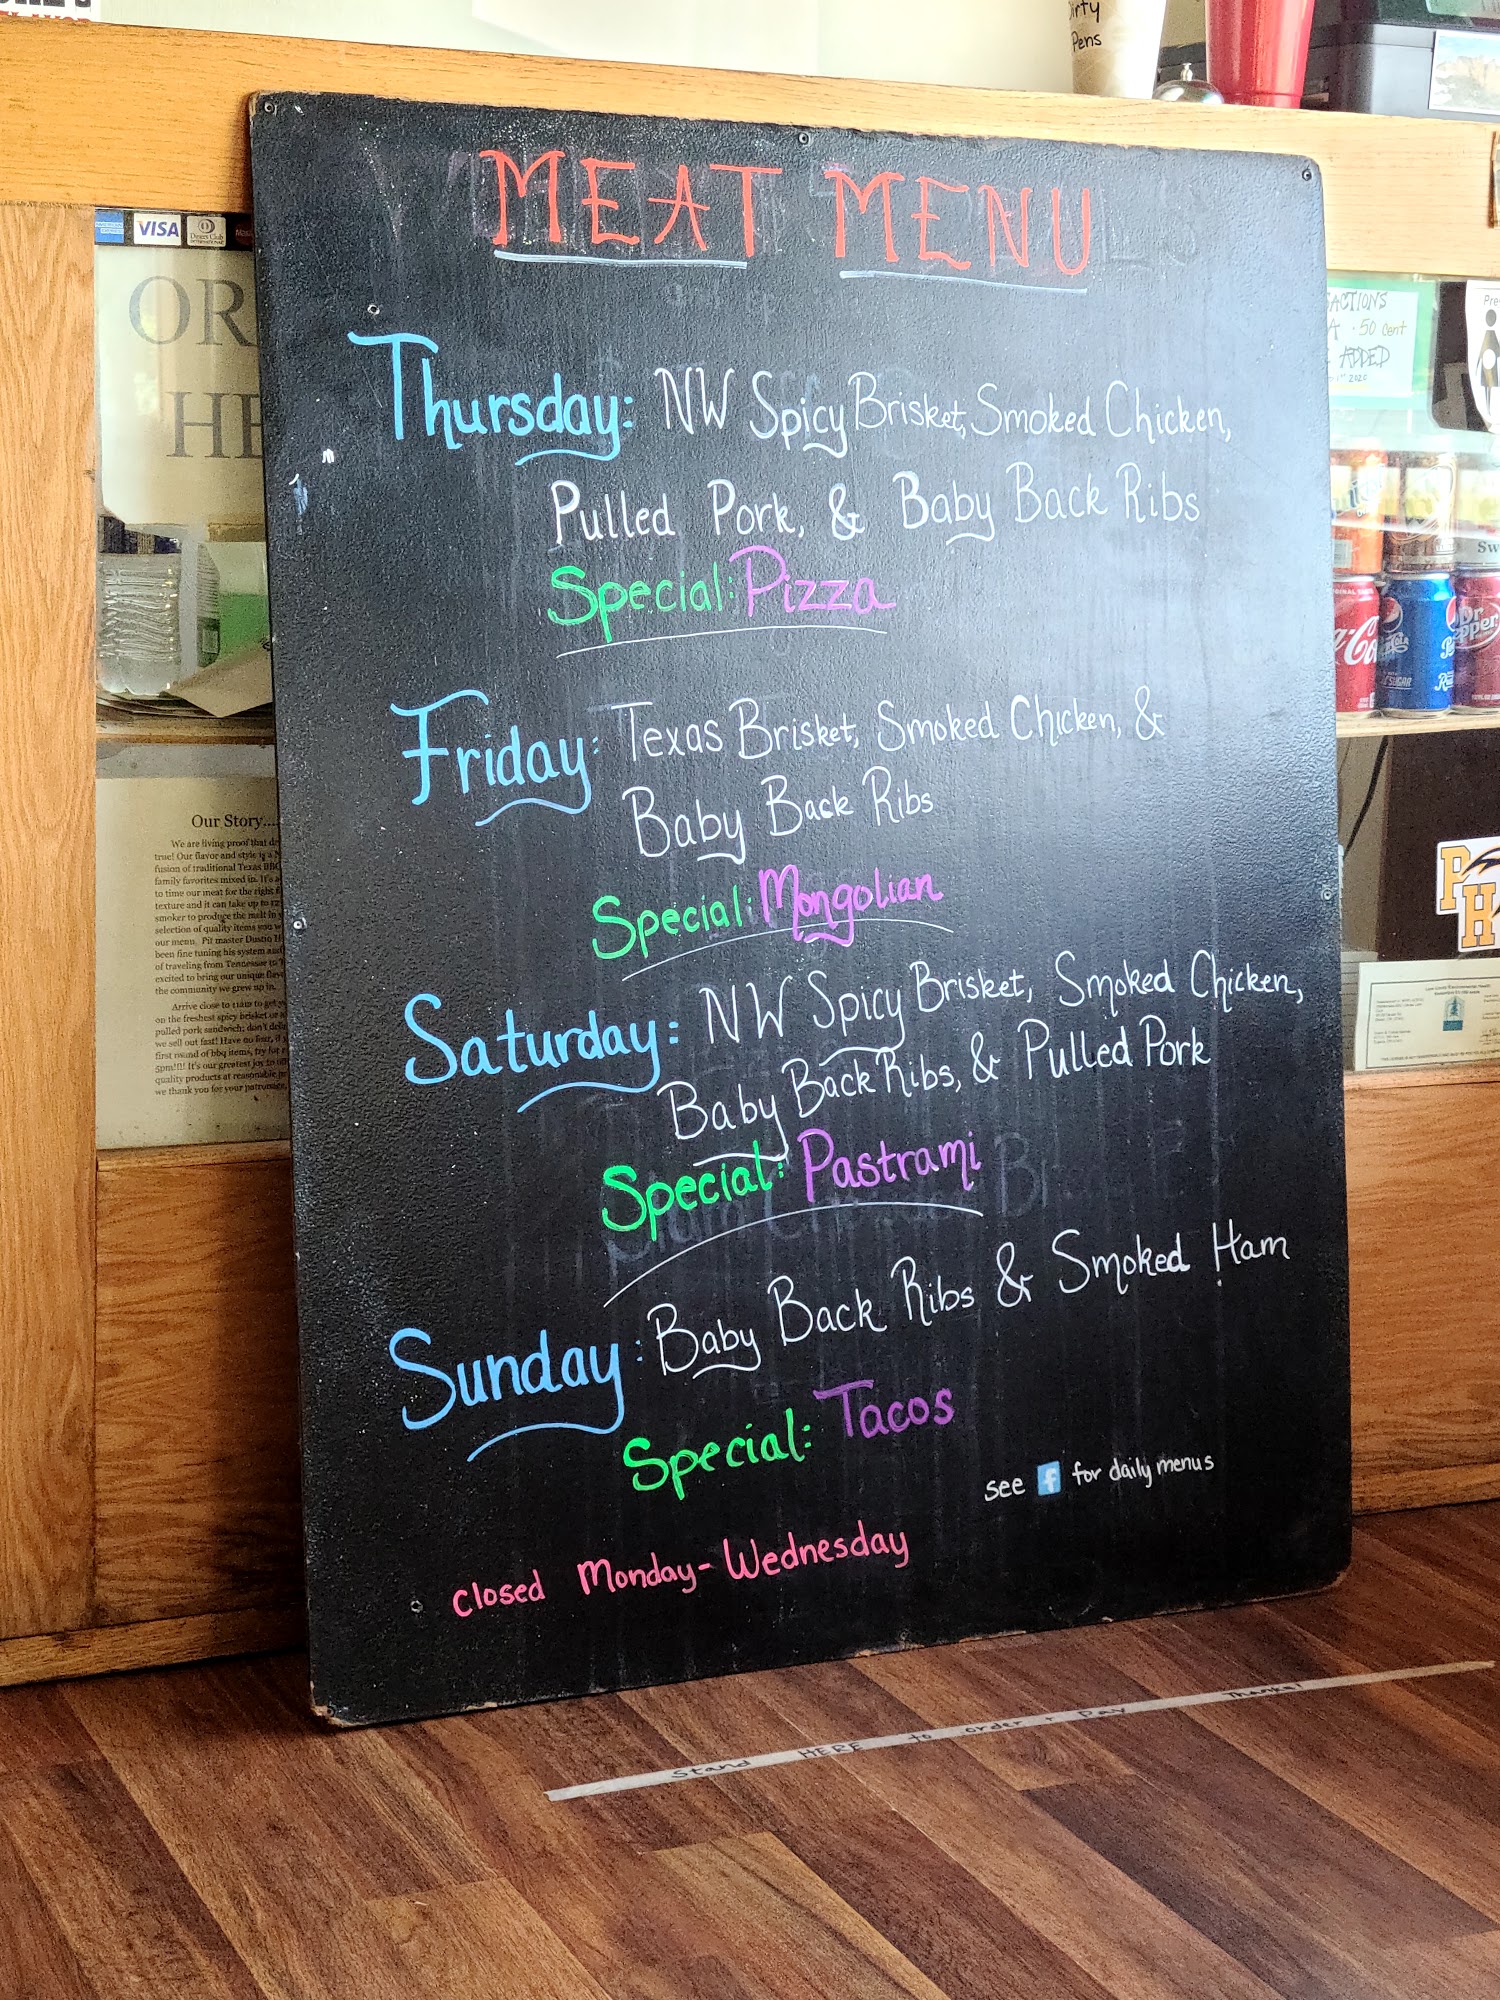 Dirty
Pens
MEAT MENU
VISA
Diners Club
OR
HE
ACTIONS
50 cent
ADDED
Thursday: NW Spicy Brisket, Smoked Chicken,
Pulled Pork, & Baby Back Ribs
Special: Pizza
Friday: Texas Brisket, Smoked Chicken, &
Baby Back Ribs
Special: Mongolian
Saturday: NW Spicy Brisket, Smoked Chicken,
Baby Back Ribs, & Pulled Pork
Special: Pastrami
Sunday: Baby Back Ribs & Smoked Ham
Special: Tacos
see f for daily menus
closed Monday-Wednesday
Our Story....
We are living proof that
true! Our flavor and style is a
fusion of traditional Texas BBQ
family favorites mixed in. It's
to time our meat for the right
texture and it can take up to
smoker to produce the
selection of quality items you
our menu. Pit master Dustin
been fine tuning his system and
of traveling from Tennessee to
excited to bring our unique
the community we grew up in.
Arrive close to 11am to get
on the freshest spicy brisket or
pulled pork sandwich; don't
we sell out fast! Have no fear,
first round of bbq items, try for
5pm!!! It's our greatest joy to
quality products at reasonable
we thank you for your patronage,
Pepsi
Dr Pepper
PH
Stand HERE to order + Pay Thanks!